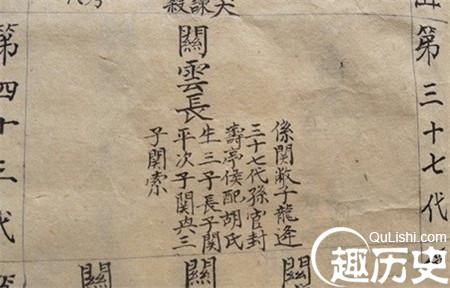 第三十七代
關雲長
係関敝子龍逄
三十七代孫官封
壽亭侯配胡氏
生三子長子関
平次子関典三
子関索
第四十三代
關
關
關
QuLishi.com
趣历史